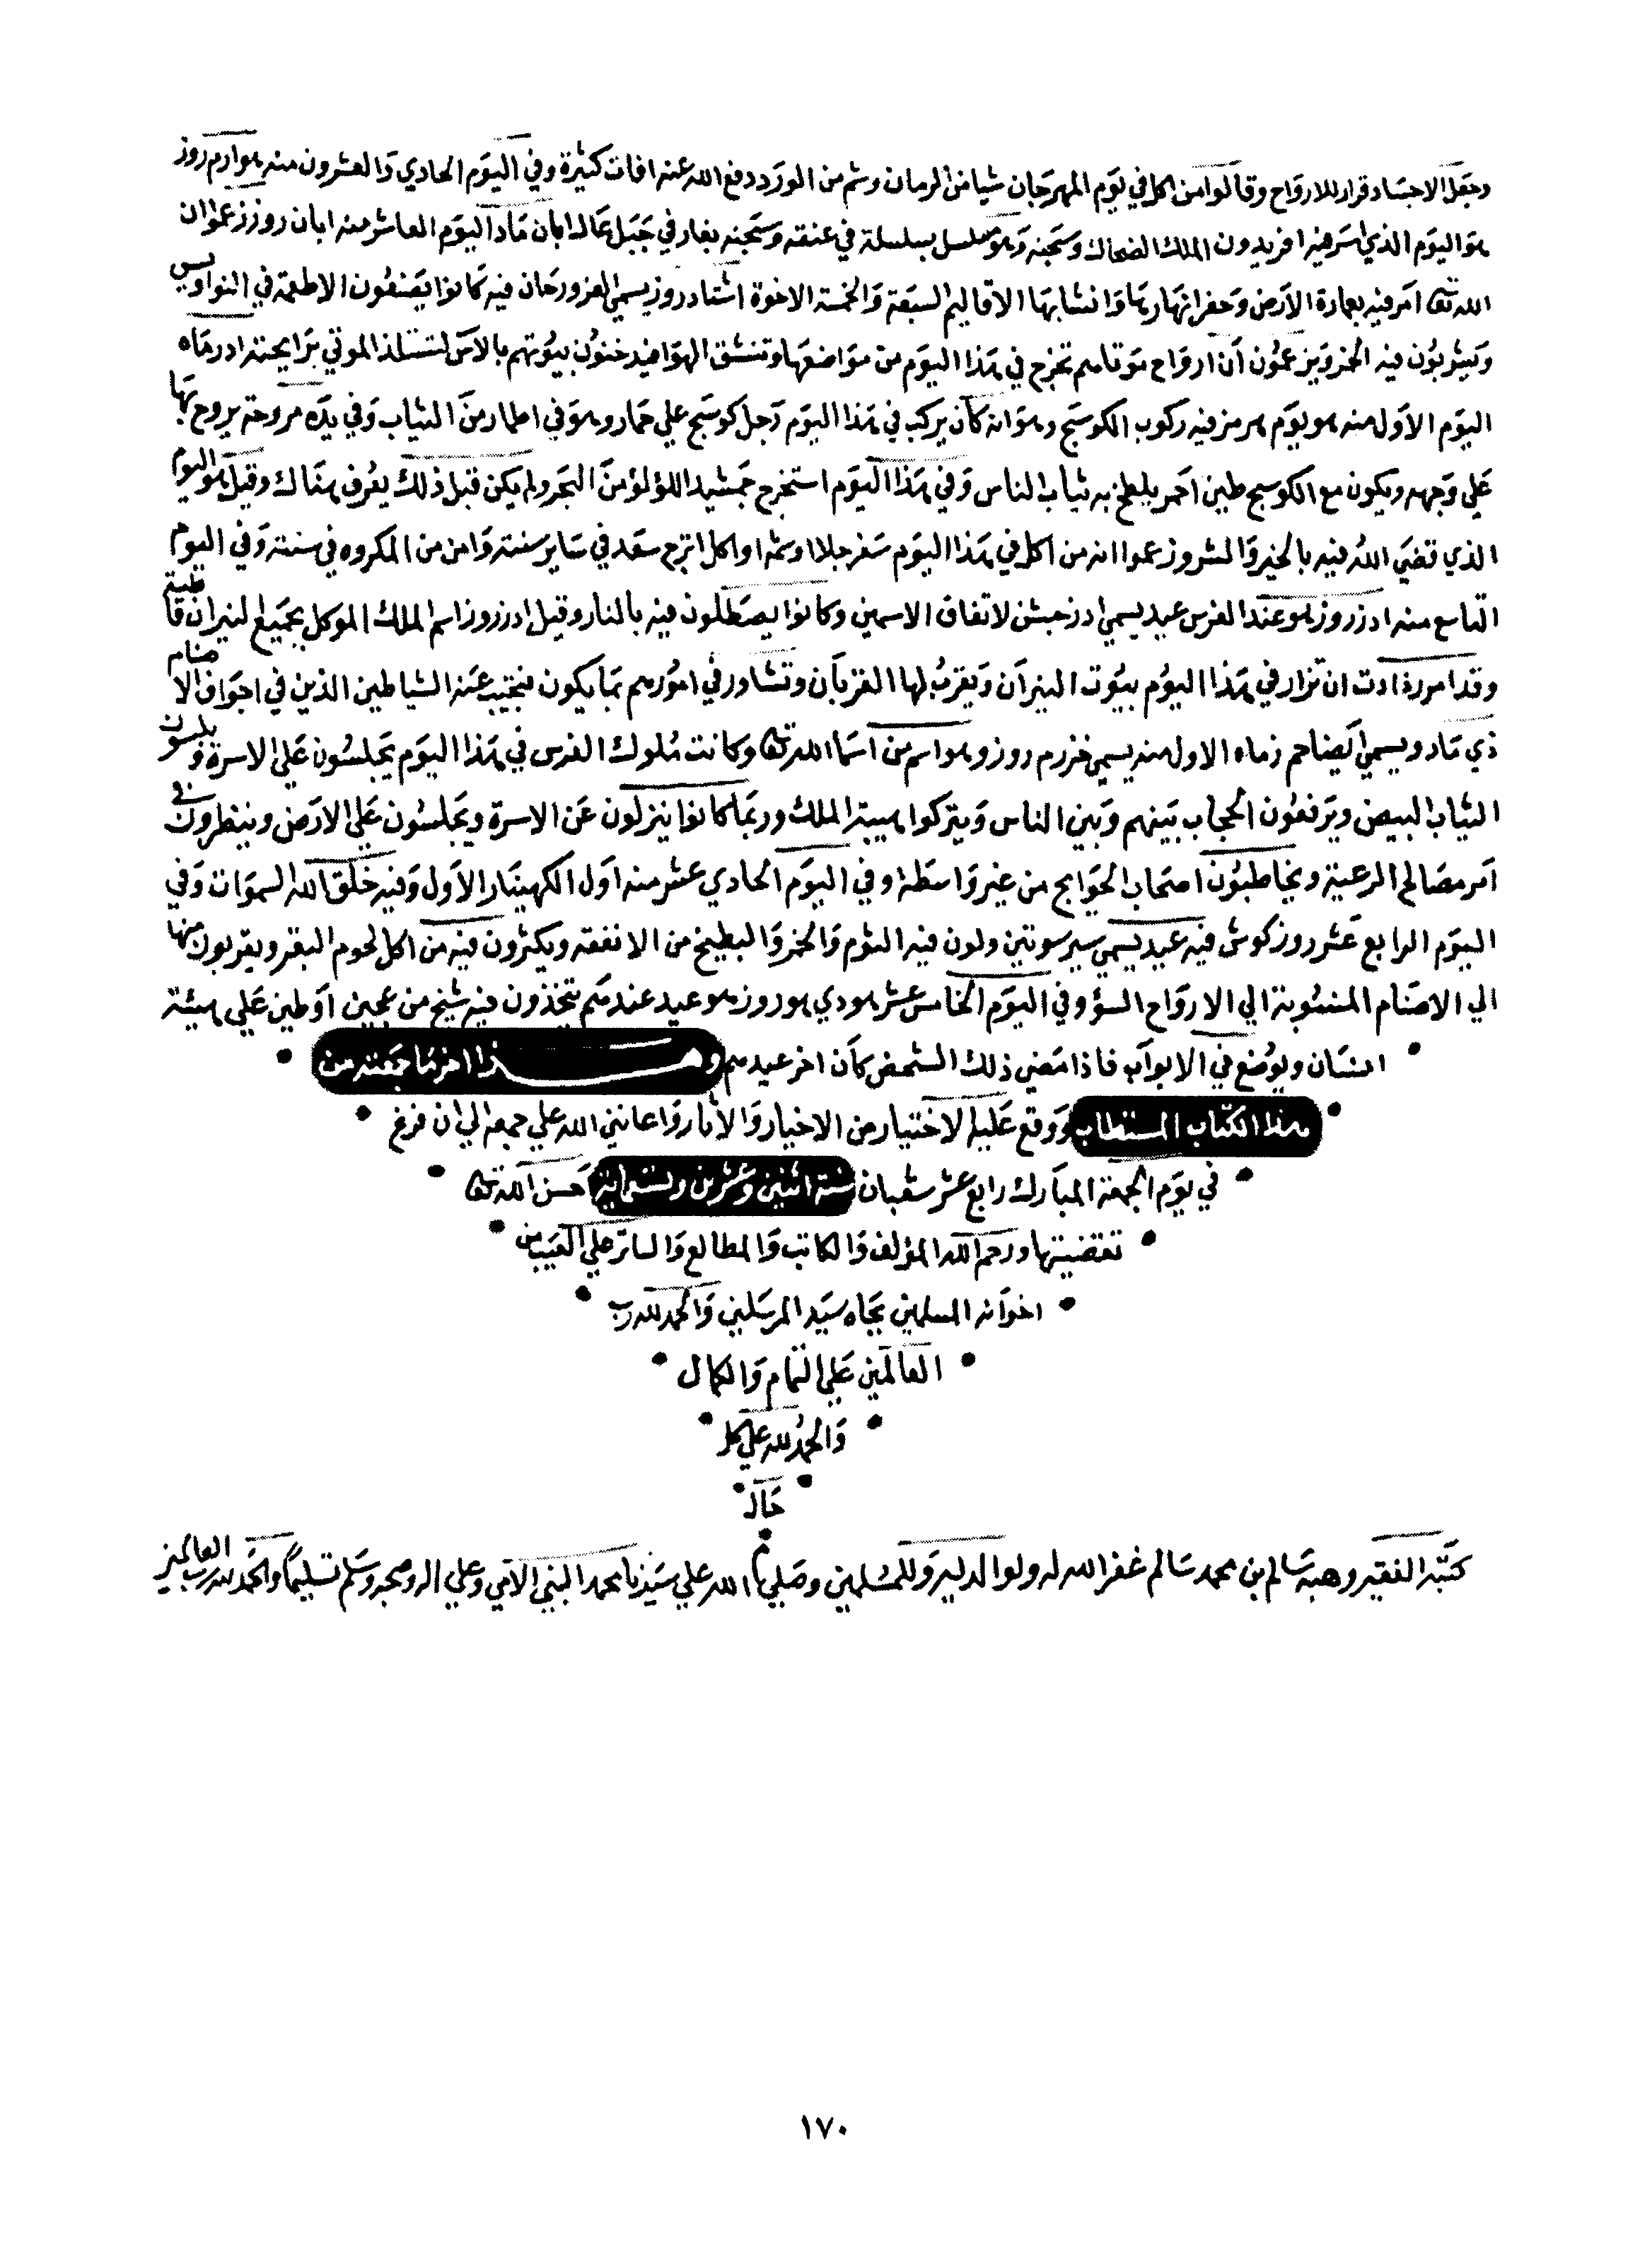 وجعل الاجساد قرار للارواح وقالوا من اكل في يوم المهرجان شيا من الرمان وشم من الورد دفع الله عنه افات كثيرة وفي اليوم الحادي والعشرون منه هو ارم روز
هو اليوم الذي اسر فيه افريدون الملك الضحاك وسجنه وهو مسلسل بسلسلة في عنقه وسجنه بغار في جبل عال ابان ماد اليوم العاشر منه ابان روز زعموا ان
الله تعالى امر فيه بعمارة الارض وحفر انهارها وانشا بها الاقاليم السبعة والخمسة الاخوة اشتاد روز يسمي الفرورجان فيه كانوا يضعفون الاطعمة في النواويس
ويشربون فيه الخمر ويزعمون ان ارواح موتاهم تخرج في هذا اليوم من مواضعها وتنشق الهوا فيدخنون بيوتهم بالاس لتستلذ الموتي برايحته ادرماه
اليوم الاول منه هو يوم هرمز فيه ركوب الكوسج وهو انه كان يركب في هذا اليوم رجل كوسج علي حمار وهو في اطمار من الثياب وفي يده مروحة يروح بها
علي وجهه ويكون مع الكوسج طين احمر يلطخ به ثياب الناس وفي هذا اليوم استخرج جمشيد اللؤلؤ من البحر ولم يكن قبل ذلك يعرف هناك وقيل هو اليوم
الذي قضي الله فيه بالخير والشر وزعموا انه من اكل في هذا اليوم سفرجلا او شمه او اكل اترج سعد في ساير سنته وامن من المكروه في سنته وفي اليوم
التاسع منه ادر روز هو عند الفرس عيد يسمي ادر جشن لاتفاق الاسمين وكانوا يصطلون فيه بالنار وقيل ادر روز اسم الملك الموكل بجميع النيران قاطبة
وقد امر زرادت ان تزار في هذا اليوم بيوت النيران ويقرب لها القربان وتشاور في امورهم بما يكون فيجيب عنه الشياطين الذين في اجواف الاصنام
ذي ماد ويسمي ايضا حم زماه الاول منه يسمي خررم روز وهو اسم من اسما الله تعالى وكانت ملوك الفرس في هذا اليوم يجلسون علي الاسرة ويلبسون
الثياب البيض ويرفعون الحجاب بينهم وبين الناس ويتركوا هيبة الملك وربما كانوا ينزلون عن الاسرة ويجلسون علي الارض وينظرون في
امر مصالح الرعية ويخاطبون اصحاب الحوايج من غير واسطه وفي اليوم الحادي عشر منه اول الكهينار الاول وفيه خلق الله السموات وفي
اليوم الرابع عشر روز كوش فيه عيد يسمي سير سو تين ولون فيه الثوم والخمر والبطيخ من الانفقه ويكثرون فيه من اكل لحوم البقر ويقربون منها
الي الاصنام المنسوبة الي الارواح السؤ وفي اليوم الخامس عشر هو دي هور وز هو عيد عندهم يتخذون فيه شيخ من عجين او طين علي هيئة
انسان ويوضع في الابواب فاذا مضي ذلك الشخص كان اخر عيدهم وهذا اخر ما جمعته من
هذا الكتاب المستطاب ووقع عليه الاختيار من الاخبار والاثار واعانني الله علي جمعه الي ان فرغ
في يوم الجمعة المبارك رابع عشر شعبان سنة اثنين وعشرين وتسعماية احسن الله تعالى
تقضيتها ورحم الله المؤلف والكاتب والمطالع والساتر علي العيب من
اخوانه المسلمين بجاه سيد المرسلين والحمد لله رب
العالمين علي التمام والكمال
والحمد لله علي كل
حال
كتبه الفقير وهبه سالم بن محمد سالم غفر الله له ولوالديه وللمسلمين وصلي الله علي سيدنا محمد النبي الامي وعلي اله وصحبه وسلم تسليما والحمد لله رب العالمين
١٧٠